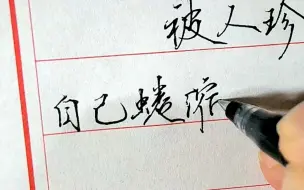 被人珍
自己蜷缩